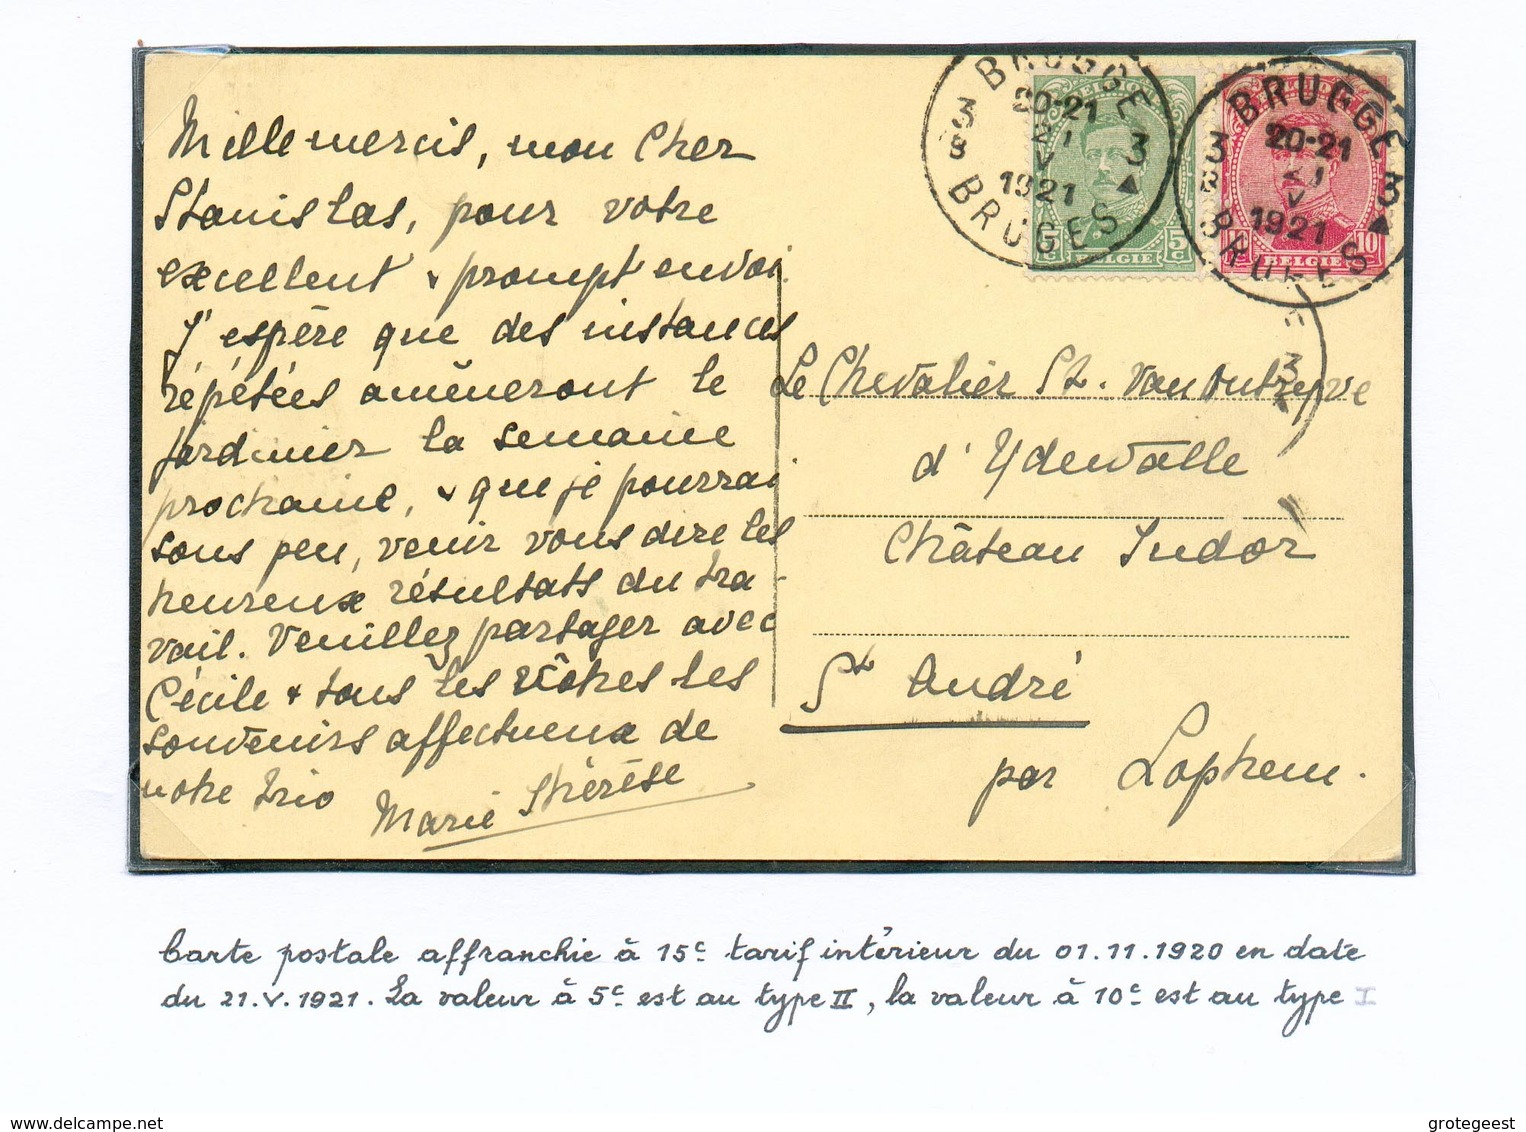 Mille mercis, mon cher
Stanislas, pour votre
excellent & prompt envoi
J'espère que des instances
répétées amèneront le
jardinier la semaine
prochaine, & que je pourrai
sous peu, venir vous dire les
heureux résultats du tra-
vail. Veuillez partager avec
Cécile & tous les vôtres les
souvenirs affectueux de
notre trio
Marie Thérèse
BRUGGE
20-21
21
V
1921
3
B
3
BRUGES
5c
BELGIE
BRUGGE
20-21
21
V
1921
3
B
3
BRUGES
10
BELGIE
3
Le Chevalier St. van Outryve
d'Ydewalle
Château Tudor
St André
par Lophem.
Carte postale affranchie à 15c tarif intérieur du 01.11.1920 en date
du 21.V.1921. La valeur à 5c est au type II, la valeur à 10c est au type I
www.delcampe.net
grotegeest